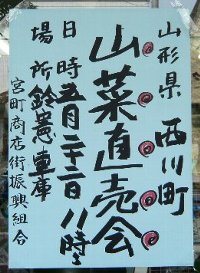 山形県 西川町
山菜直売会
日時五月二十二日 11時〜
場所鈴憲車庫
宮町商店街振興組合